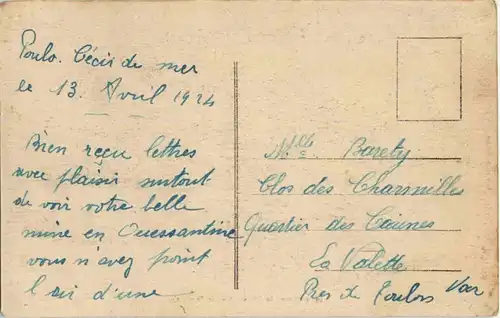 Poulo. Récit de mer
le 13. Avril 1924
Bien reçu lettres
avec plaisir surtout
de voir votre belle
mine en Ouessantine
vous n'avez point
l'air d'une
Mlle. Barety
Clos des Charmilles
Quartier des
La Valette
Près de Toulon Var